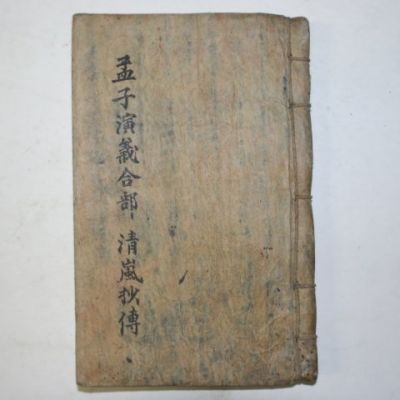 孟子演義合部 清嵐抄傳